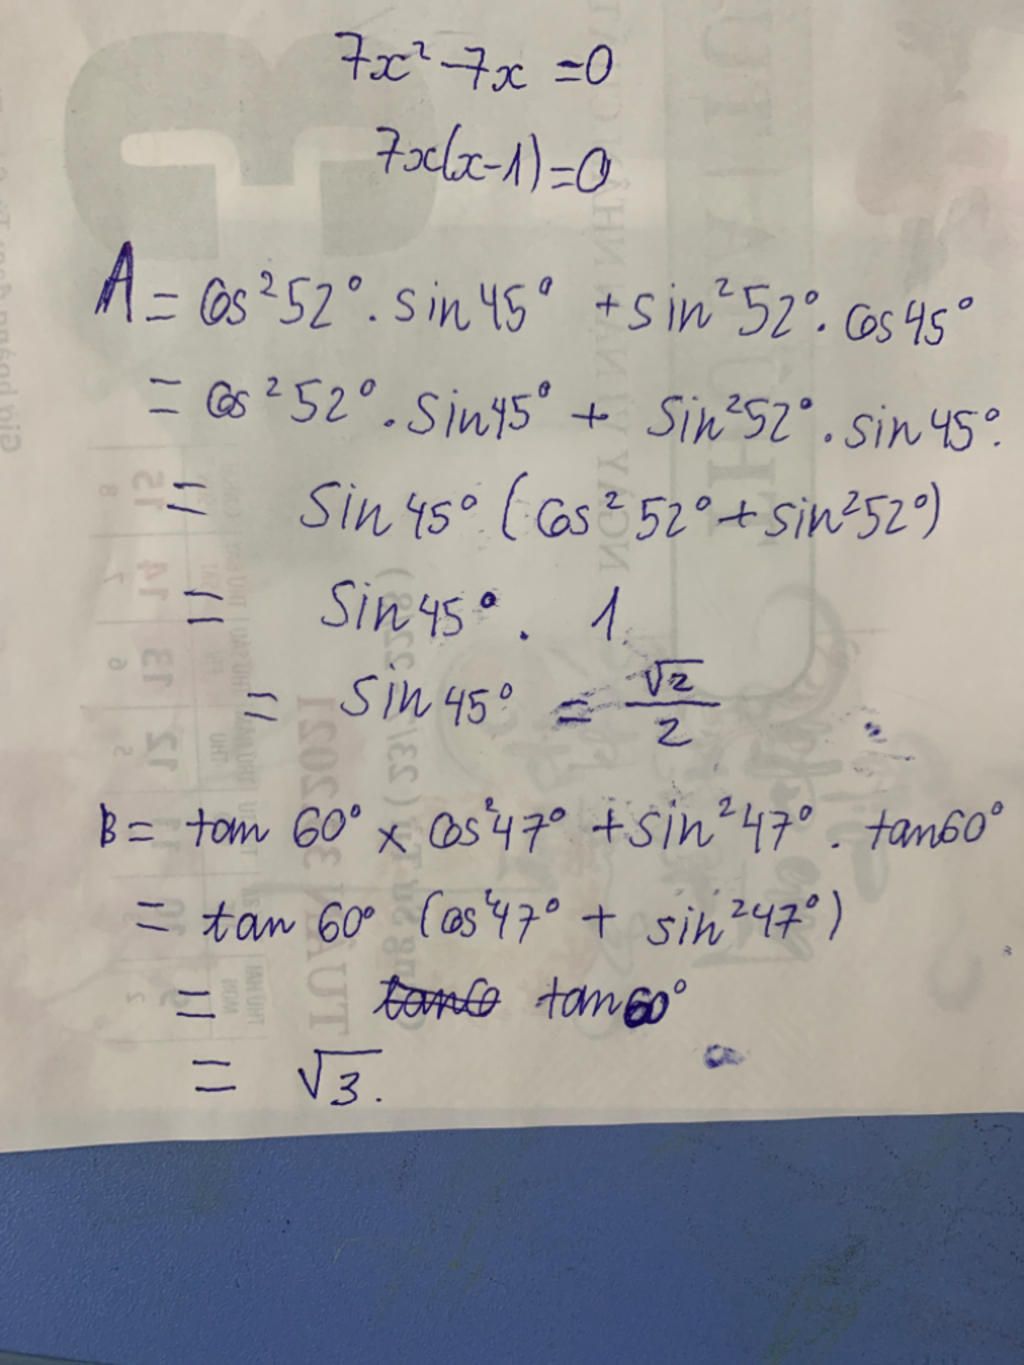 7x² - 7x = 0
7x(x-1) = 0
A = cos²52°. sin 45° + sin²52°. cos 45°
= cos²52°. Sin 45° + Sin²52°. sin 45°.
= Sin 45° (cos²52° + sin²52°)
= Sin 45°. 1
= Sin 45° = √2/2
B = tan 60° × cos²47° + sin²47°. tan 60°
= tan 60° (cos²47° + sin²47°)
= tan 60°
= √3.